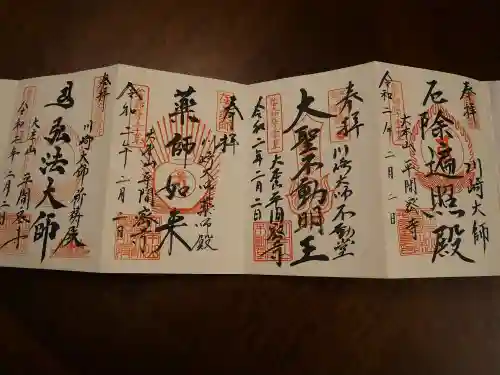 奉拝
川崎大師
厄除遍照殿
大本山 平間寺
令和二年二月二日
奉拝
川崎大師不動堂
大聖不動明王
大本山 平間寺
令和二年二月二日
奉拝
川崎大師薬師殿
薬師如来
大本山 平間寺
令和二年二月二日
奉拝
川崎大師
弘法大師
大本山 平間寺
令和二年二月二日